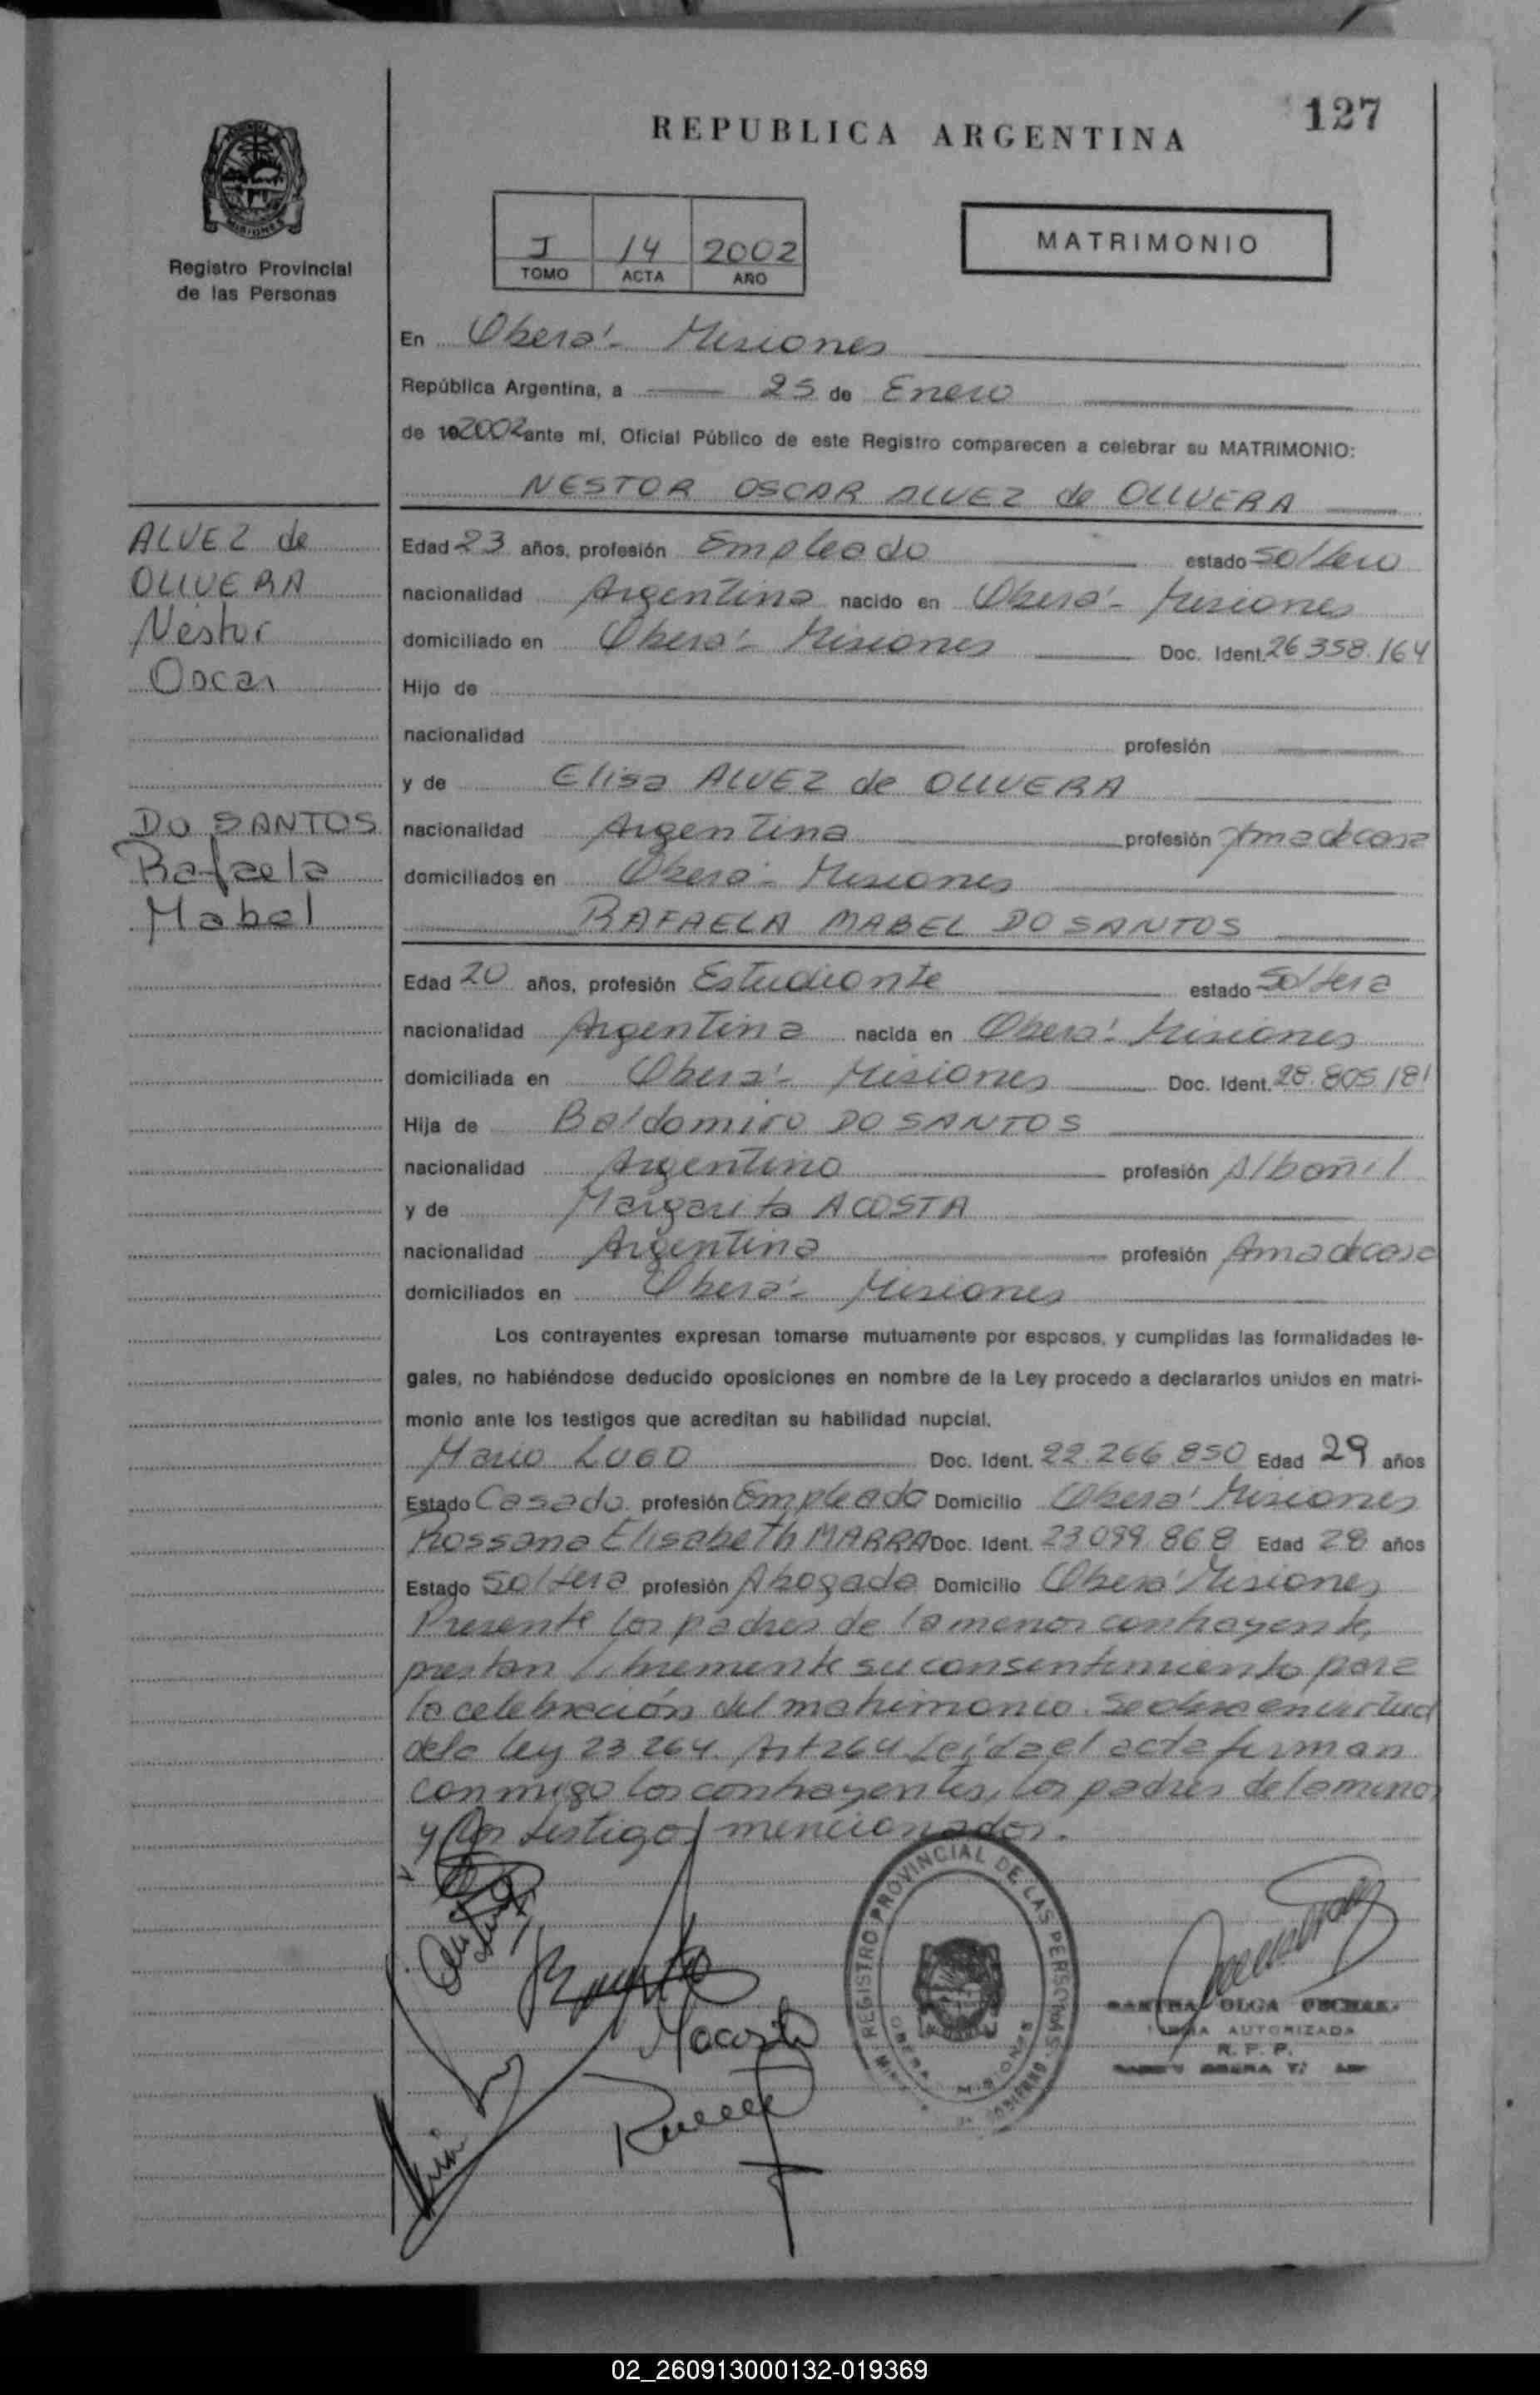 127
REPUBLICA ARGENTINA
MISIONES
Registro Provincial
de las Personas
I 14 2002
TOMO ACTA AÑO
MATRIMONIO
En Oberá - Misiones
República Argentina, a 25 de Enero
de 192002 ante mí, Oficial Público de este Registro comparecen a celebrar su MATRIMONIO:
NESTOR OSCAR ALVEZ de OLIVERA
ALVEZ de
OLIVERA
Néstor
Oscar
Edad 23 años, profesión Empleado estado Soltero
nacionalidad Argentina nacido en Oberá - Misiones
domiciliado en Oberá - Misiones Doc. Ident. 26 358.164
Hijo de
nacionalidad profesión
y de Elisa ALVEZ de OLIVERA
DO SANTOS
Rafaela
Mabel
nacionalidad Argentina profesión Ama de casa
domiciliados en Oberá - Misiones
RAFAELA MABEL DO SANTOS
Edad 20 años, profesión Estudiante estado Soltera
nacionalidad Argentina nacida en Oberá - Misiones
domiciliada en Oberá - Misiones Doc. Ident. 28.805 181
Hija de Baldomiro DO SANTOS
nacionalidad Argentino profesión Albañil
y de Margarita ACOSTA
nacionalidad Argentina profesión Ama de casa
domiciliados en Oberá - Misiones
Los contrayentes expresan tomarse mutuamente por esposos, y cumplidas las formalidades le-
gales, no habiéndose deducido oposiciones en nombre de la Ley procedo a declararlos unidos en matri-
monio ante los testigos que acreditan su habilidad nupcial.
Mario LUGO Doc. Ident. 22.266.850 Edad 29 años
Estado Casado profesión Empleado Domicilio Oberá Misiones
Rossana Elisabeth MARRA Doc. Ident. 23 099 868 Edad 28 años
Estado Soltera profesión Abogada Domicilio Oberá Misiones
Presente los padres de la menor contrayente,
prestan libremente su consentimiento para
la celebración del matrimonio. Se obra en virtud
de la ley 23 264. Art 264 Leída el acta firman
conmigo los contrayentes, los padres de la menor
y los testigos mencionados.
Macosta
REGISTRO PROVINCIAL DE LAS PERSONAS
OBERA MISIONES
OLGA
FIRMA AUTORIZADA
R. P. P.
02_260913000132-019369